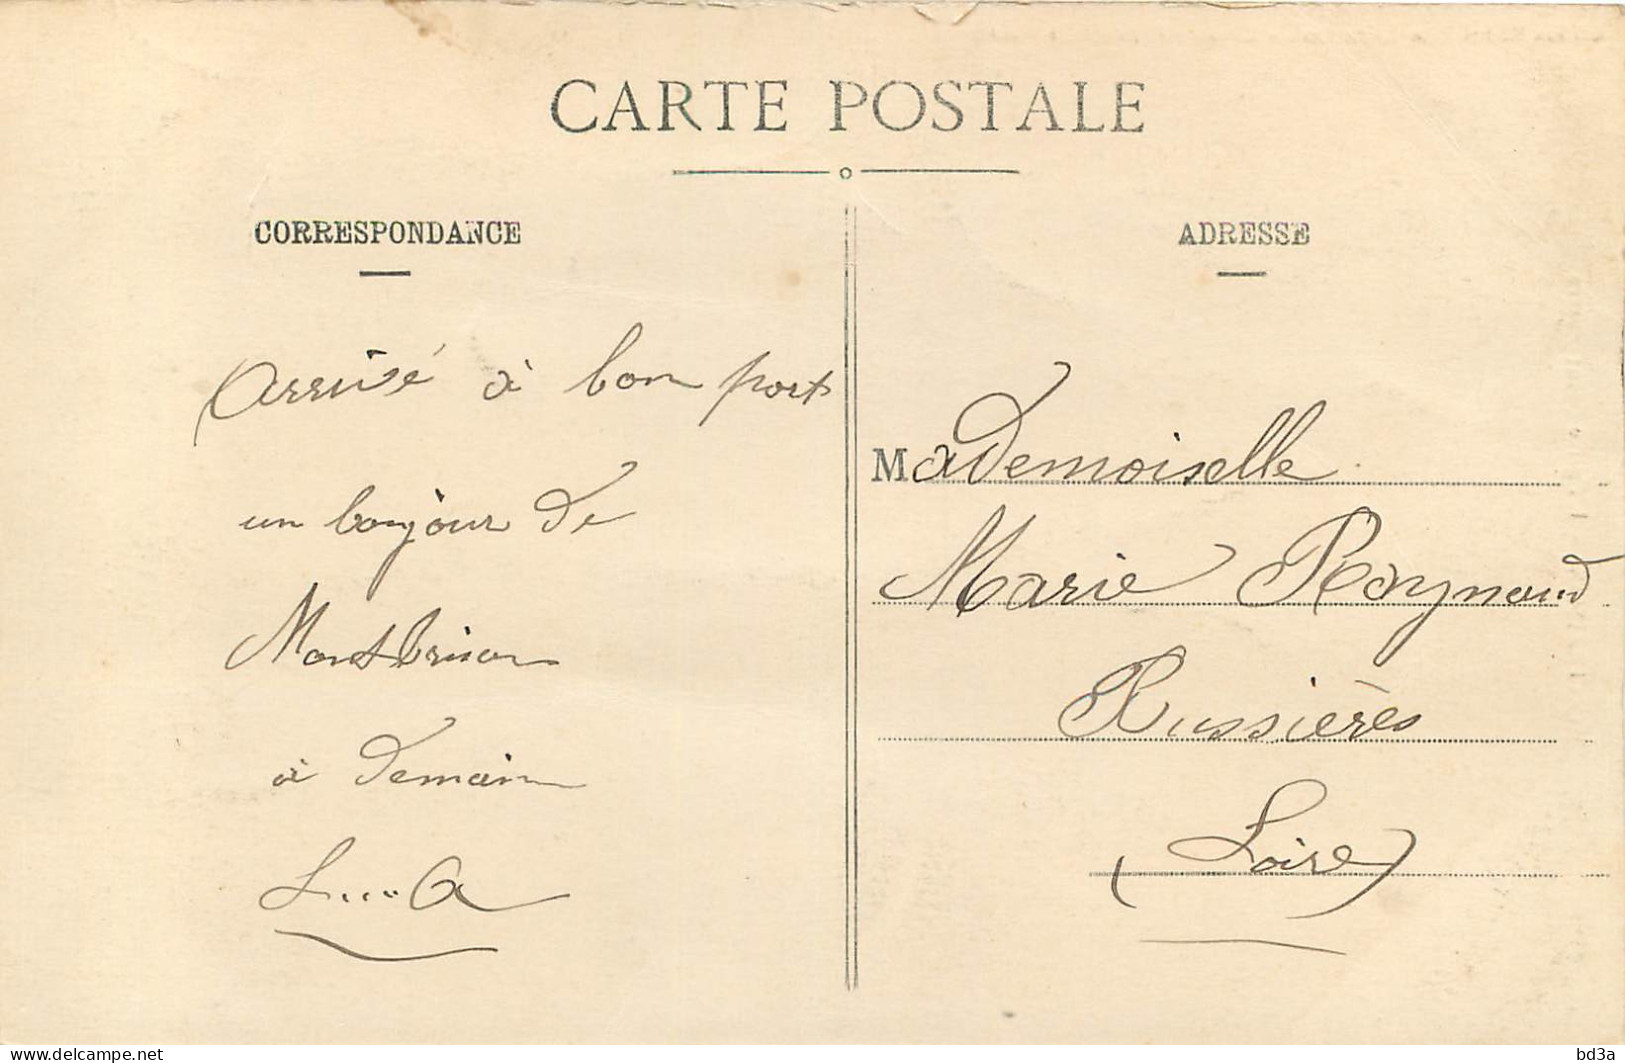 CARTE POSTALE
CORRESPONDANCE
Arrivé à bon port
un bonjour de
Montbrison
à demain
L...A
ADRESSE
Mademoiselle
Marie Raynaud
Russières
(Loire)
delcampe.net
bd3a